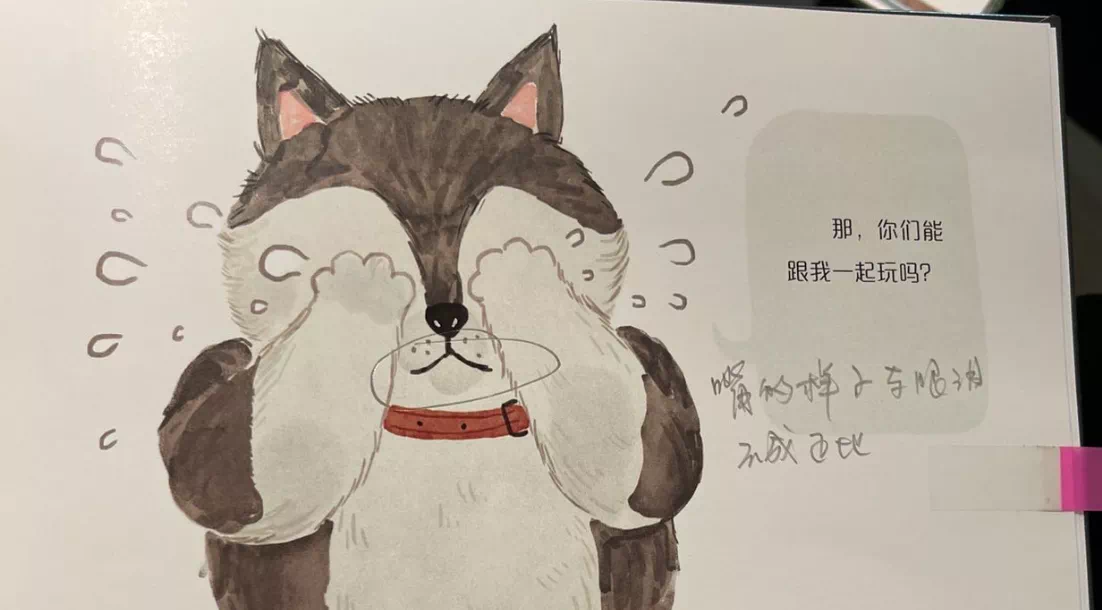 那，你们能
跟我一起玩吗？
嘴的样子与眼泪
不成正比